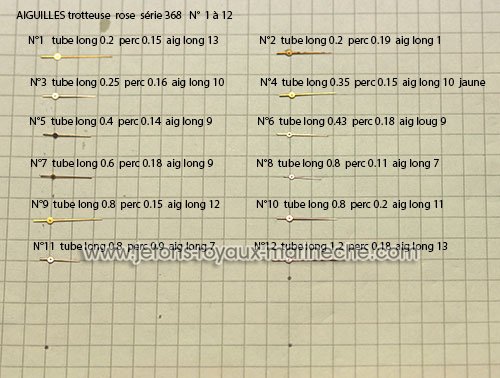 AIGUILLES trotteuse rose série 368 N° 1 à 12
N°1 tube long 0.2 perc 0.15 aig long 13
N°2 tube long 0.2 perc 0.19 aig long 1
N°3 tube long 0.25 perc 0.16 aig long 10
N°4 tube long 0.35 perc 0.15 aig long 10 jaune
N°5 tube long 0.4 perc 0.14 aig long 9
N°6 tube long 0.43 perc 0.18 aig loug 9
N°7 tube long 0.6 perc 0.18 aig long 9
N°8 tube long 0.8 perc 0.11 aig long 7
N°9 tube long 0.8 perc 0.15 aig long 12
N°10 tube long 0.8 perc 0.2 aig long 11
N°11 tube long 0.8 perc 0.9 aig long 7
N°12 tube long 1.2 perc 0.18 aig long 13
www.jetons-royaux-marineche.com